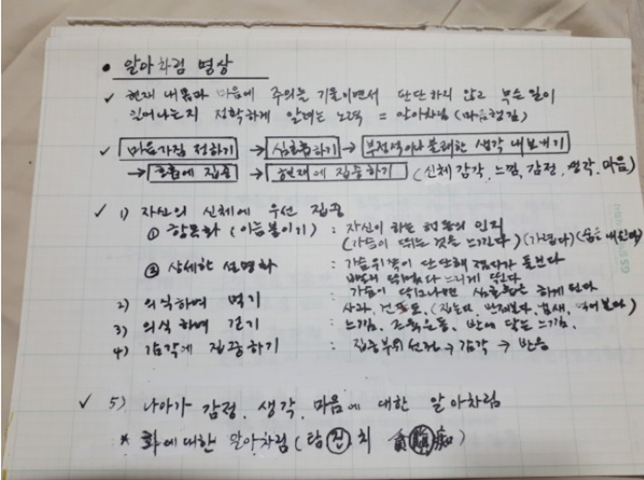 • 알아차림 명상
✓ 현재 내 몸과 마음에 주의를 기울이면서 판단하지 않고 무슨 일이
일어나는지 정확하게 알려는 노력 = 알아차림 (마음챙김)
✓ 마음가짐 정하기 → 심호흡하기 → 부정적이나 불쾌한 생각 내보내기
→ 호흡에 집중 → 현재에 집중하기 (신체 감각, 느낌, 감정, 생각, 마음)
✓ 1) 자신의 신체에 우선 집중
① 항목화 (이름붙이기) : 자신이 하는 행동의 인지
(가슴이 뛰는 것을 느낀다) (가렵다) (숨을 내쉰다)
② 상세한 설명화 : 가슴 위쪽이 단단해
느리게 뛴다
가슴이 심호흡은 하게 된다
2) 의식하며 먹기 : 사과, 건포도, (집는다, 만져본다, 냄새, 먹어본다)
3) 의식하며 걷기 : 느낌, 발에 닿는 느낌.
4) 감각에 집중하기 : 집중부위 선정 → 감각 → 반응
✓ 5) 나아가 감정, 생각, 마음에 대한 알아차림
* 화에 대한 알아차림 (탐 진 치 貪 瞋 痴)